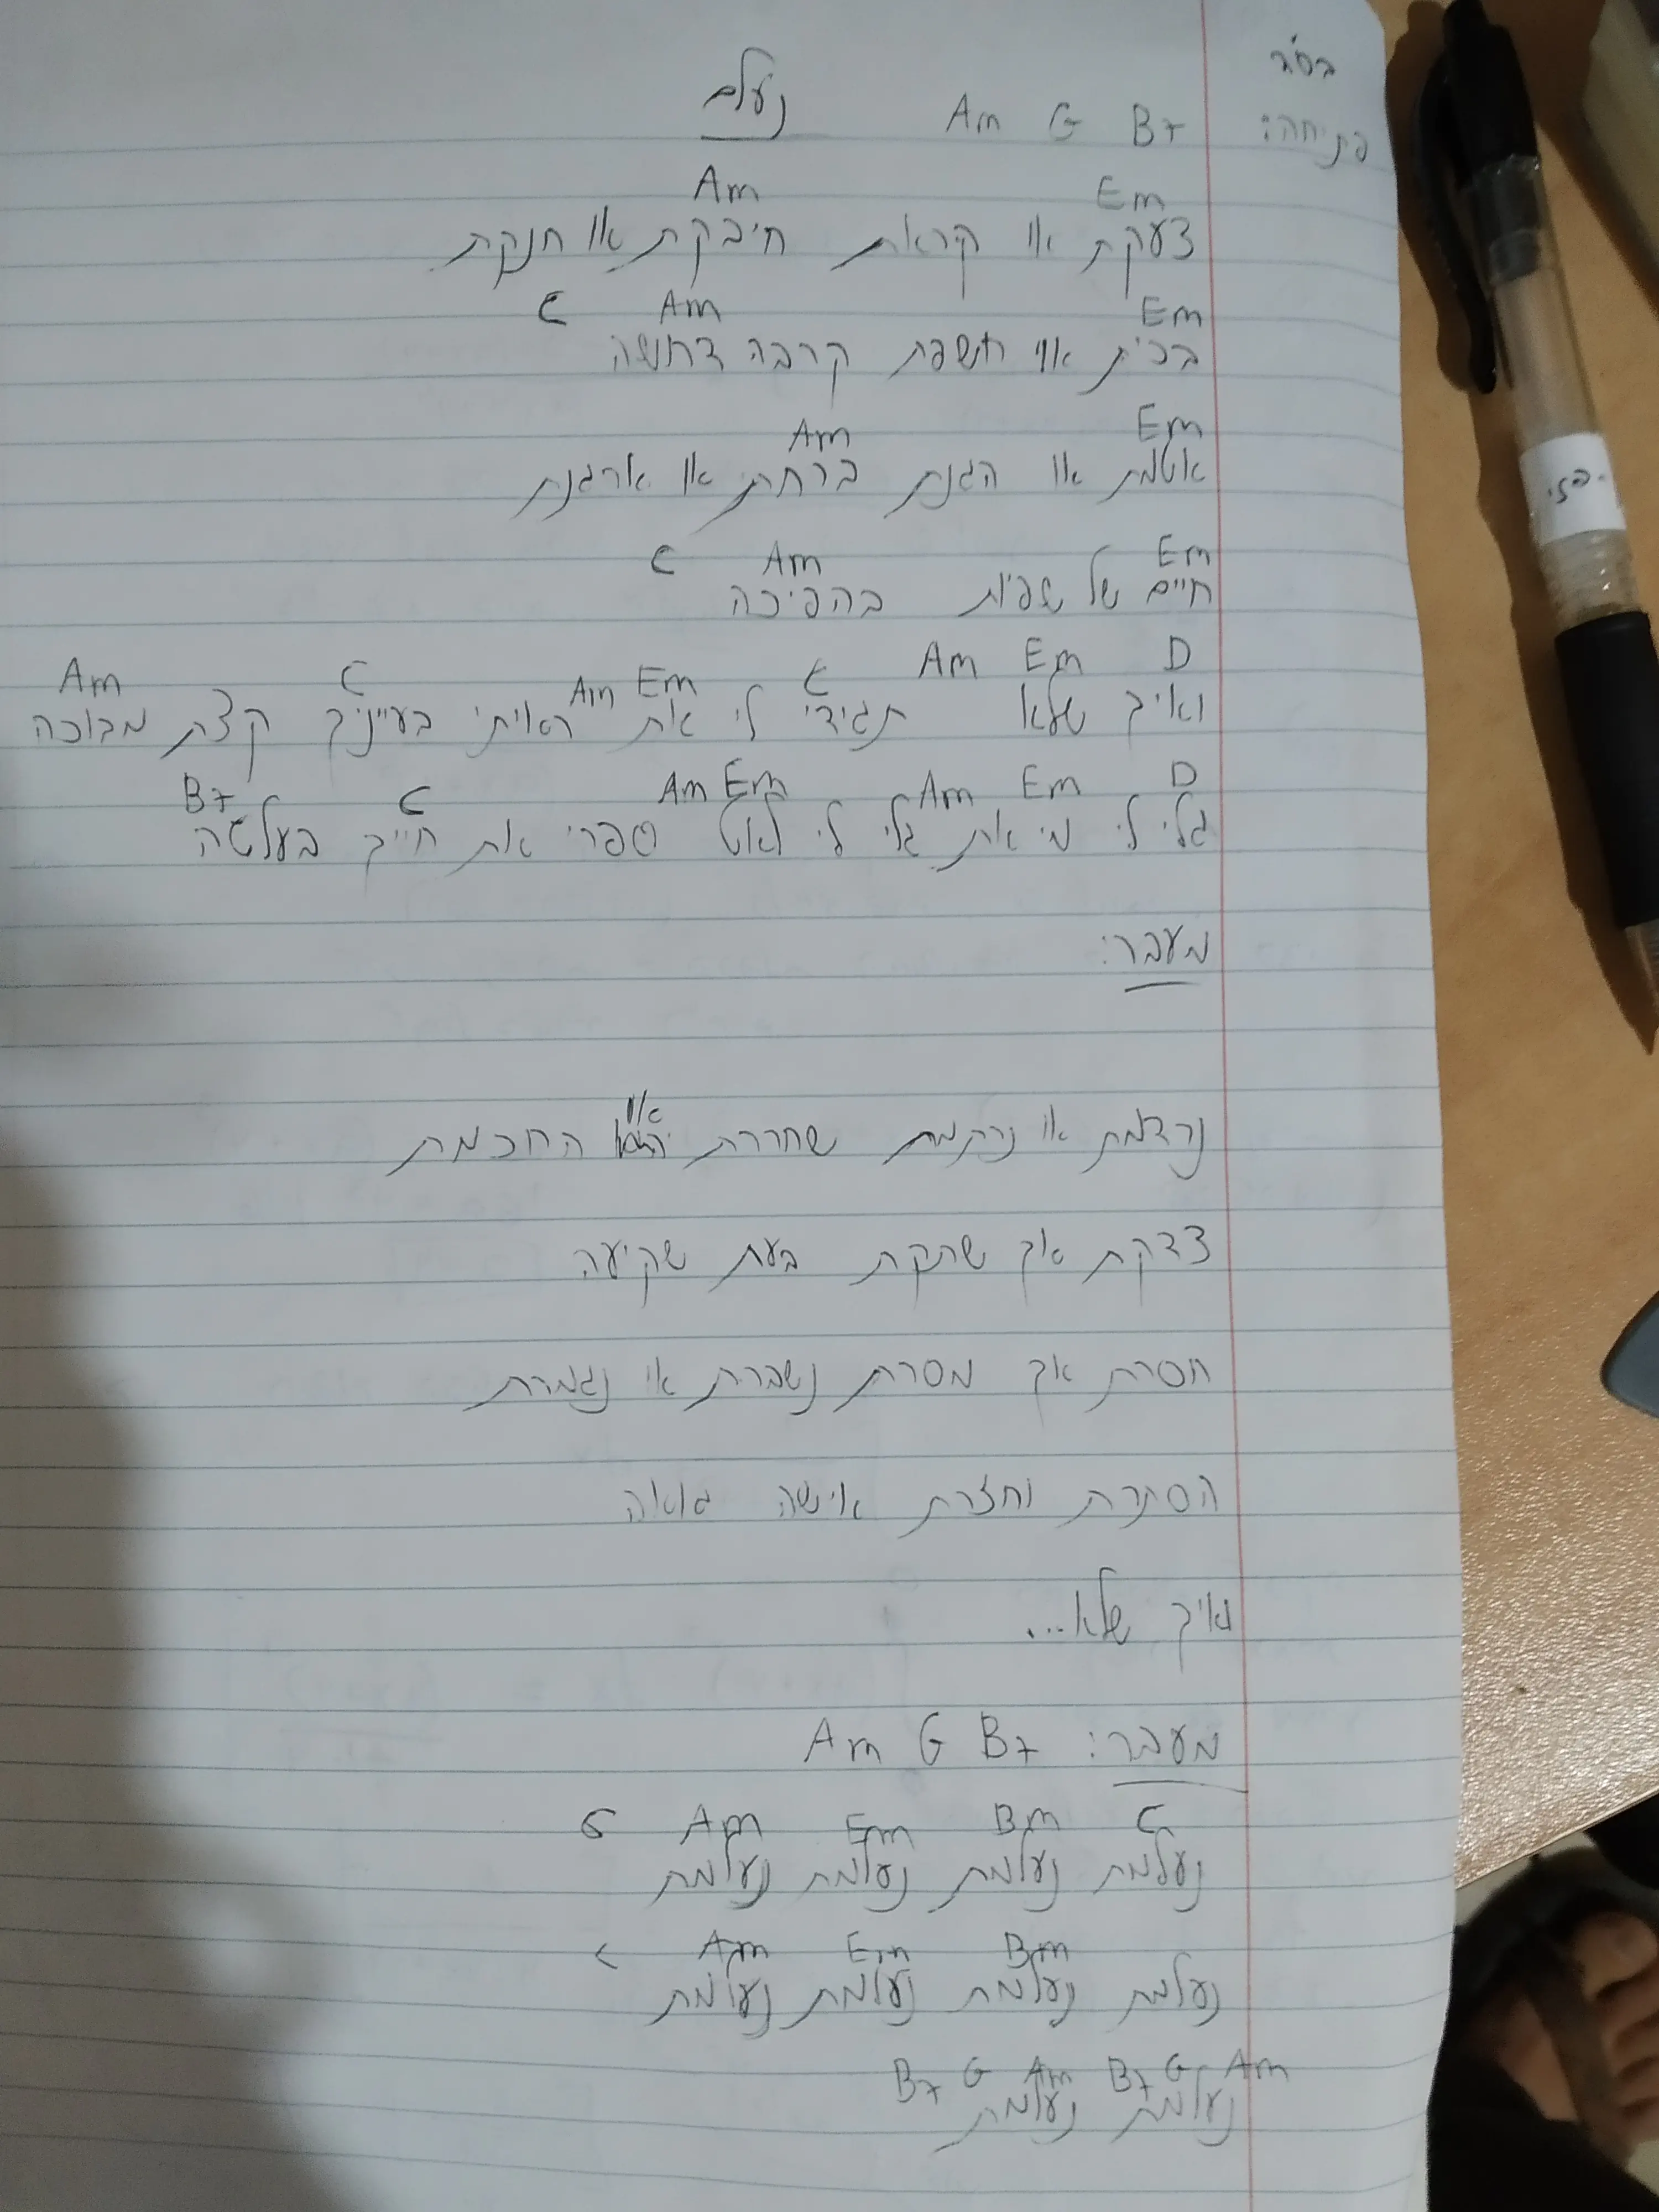 בס"ד
נעלם
פתיחה: Am G B7
Em Am
צעקת או קראת חיבקת או חנקת
Em Am C
בכית או חשפת קרבה דחושה
Em Am
אטמת או הגנת ברחת או ארגנת
Em Am C
חיים של שפיות בהפיכה
D Em Am C Em Am C Am
ואיך שלא תגידי לי את ראיתי בעינייך קצת מבוכה
D Em Am Em Am C B7
גלי לי מי את גלי לי לאט ספרי את חייך בעלטה
מעבר:
או
נרדמת או נרקמת שחררת החכמת
צדקת אך שתקת בעת שקיעה
חסרת אך מסרת נשברת או נגמרת
הסתרת וחזרת אישה גואה
ואיך שלא...
מעבר: Am G B7
C Bm Em Am G
נעלמת נעלמת נעלמת נעלמת
Bm Em Am C
נעלמת נעלמת נעלמת נעלמת
B7 G Am B7 G Am
נעלמת נעלמת